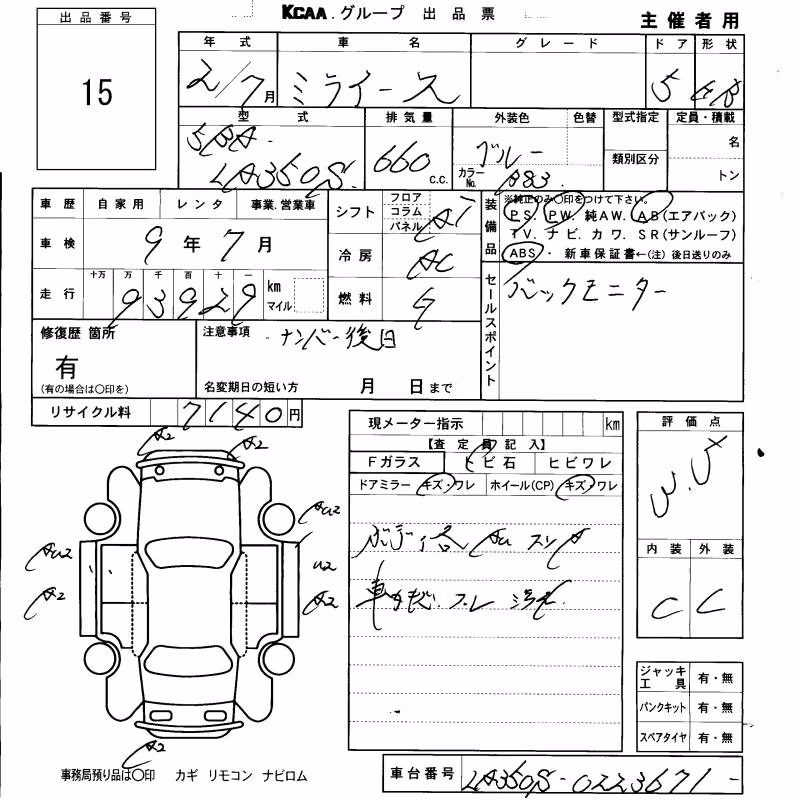 KCAA.グループ 出品票
主催者用
出品番号
15
年式 車名 グレード ドア 形状
2/7月 ミライース 5
型式 排気量 外装色 色替 型式指定 定員・積載
5BA-
LA350S 660 c.c. ブルー 類別区分 名
カラーNo. B83 トン
車歴 自家用 レンタ 事業.営業車
車検 9年7月
走行 十万 万 千 百 十 一
93929 km マイル
シフト フロア コラム パネル AT
冷房 AC
燃料 G
装備品 ※純正のみ○印をつけて下さい。
PS. PW. 純AW. AB(エアバック)
TV. ナビ. カワ. SR(サンルーフ)
ABS・ 新車保証書←(注)後日送りのみ
セールスポイント
バックモニター
修復歴 箇所
有
(有の場合は○印を)
注意事項 ナンバー後日
名変期日の短い方 月 日まで
リサイクル料 7140円
現メーター指示 km
【査定員記入】
Fガラス トビ石 ヒビワレ
ドアミラー キズ・ワレ ホイール(CP) キズ・ワレ
評価点
内装 外装
C C
A2
A2
A2
A2
A2
ジャッキ工具 有・無
パンクキット 有・無
スペアタイヤ 有・無
事務局預り品は○印 カギ リモコン ナビロム
車台番号 LA350S-0223671-